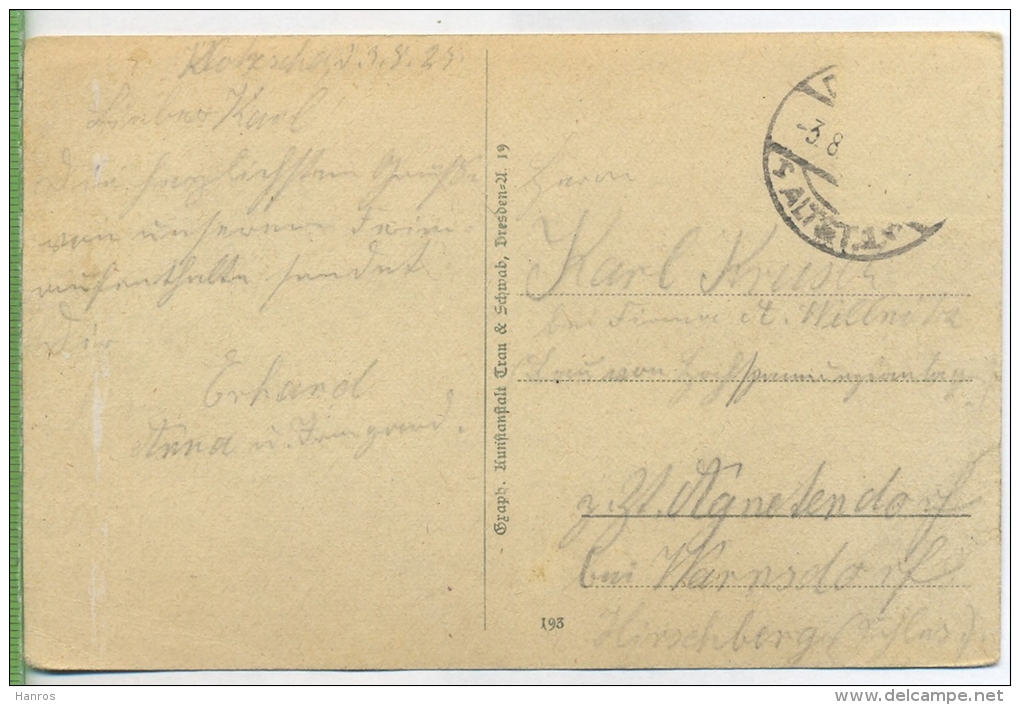 Klotzsche, d. 3.8.25.
Lieber Karl!
Die herzlichsten Grüße
von unserem Ferien-
aufenthalte sendet
Dir
Erhard
Anna u. Irmgard.
Graph. Kunstanstalt Trau & Schwab, Dresden-A. 19
193
-3.8
ALTST. 1
Herrn
Karl
bei Firma A.
Bau von Hochspannungsanlag.
z. Zt. Agnetendorf
bei Warmsdorf
Hirschberg (Schles.)
Hanros
delcampe.net